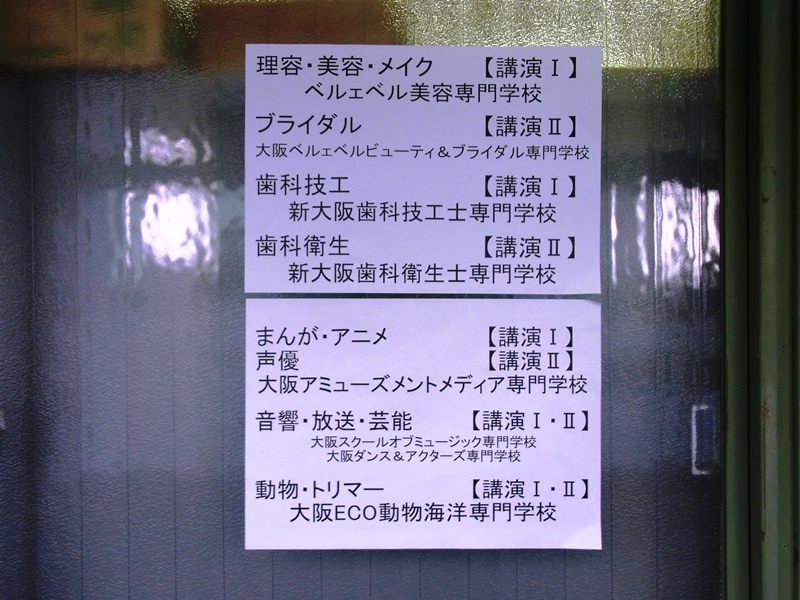 理容・美容・メイク 【講演Ⅰ】
ベルェベル美容専門学校
ブライダル 【講演Ⅱ】
大阪ベルェベルビューティ＆ブライダル専門学校
歯科技工 【講演Ⅰ】
新大阪歯科技工士専門学校
歯科衛生 【講演Ⅱ】
新大阪歯科衛生士専門学校
まんが・アニメ 【講演Ⅰ】
声優 【講演Ⅱ】
大阪アミューズメントメディア専門学校
音響・放送・芸能 【講演Ⅰ・Ⅱ】
大阪スクールオブミュージック専門学校
大阪ダンス＆アクターズ専門学校
動物・トリマー 【講演Ⅰ・Ⅱ】
大阪ECO動物海洋専門学校